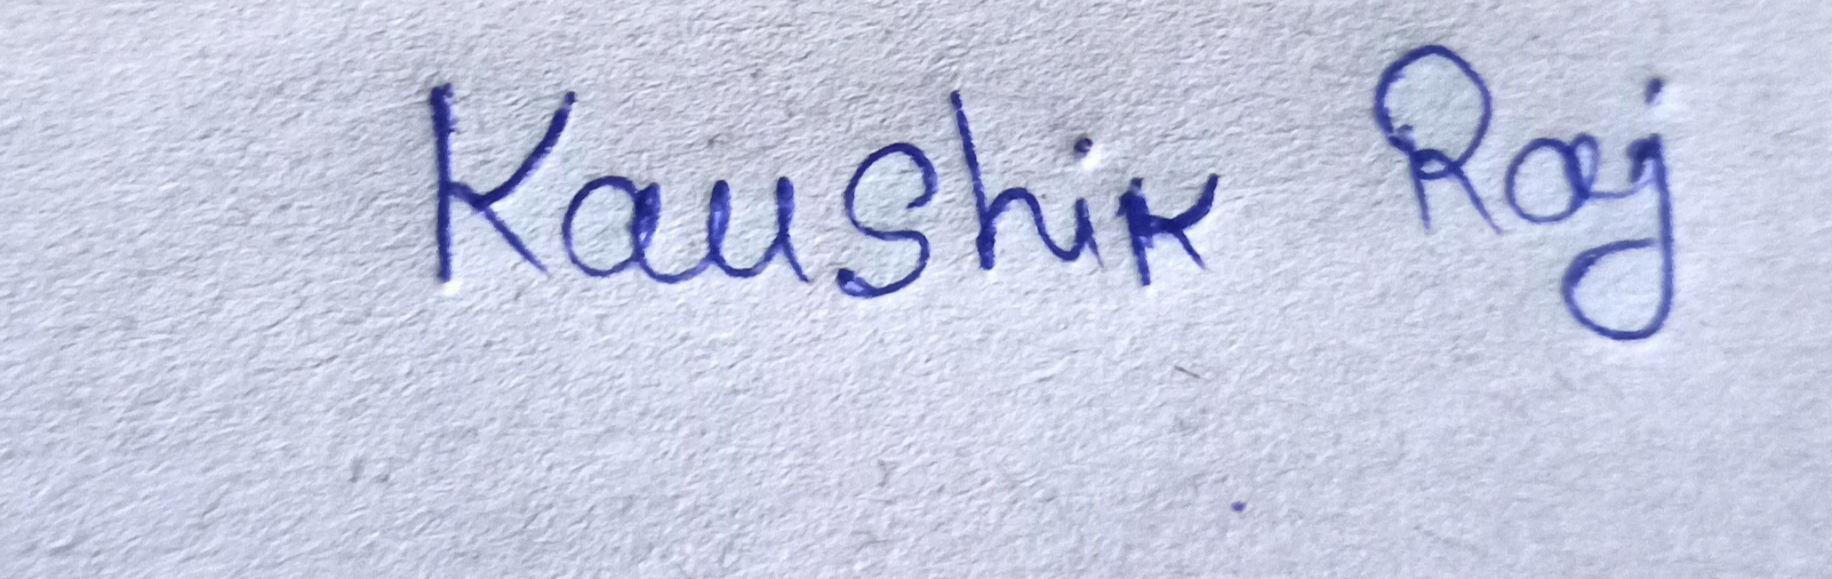 Kaushik Raj